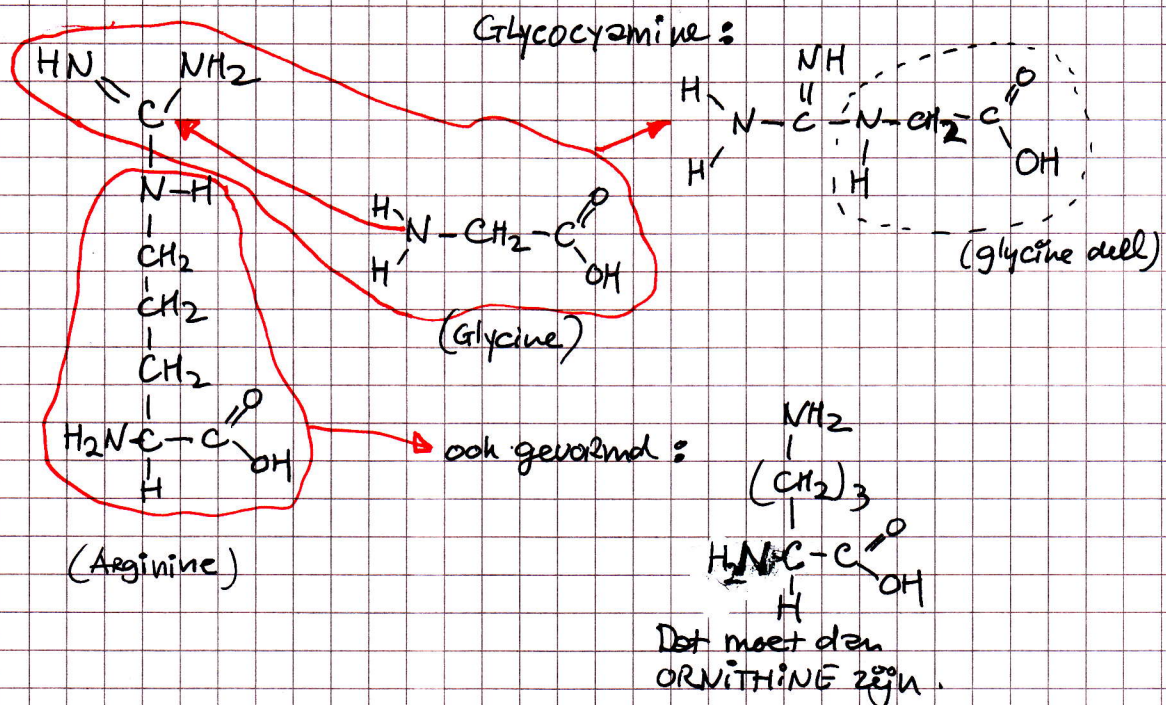 Glycocyamine :
HN NH2
C
N-H
CH2
CH2
CH2
H2N-C-C O
OH
H
(Arginine)
H
N-CH2-C O
H
OH
(Glycine)
NH
H
N-C-N-CH2-C O
H
H
OH
(glycine deel)
ook gevormd :
NH2
(CH2)3
H2N-C-C O
OH
H
Dat moet dan
ORNITHINE zijn.